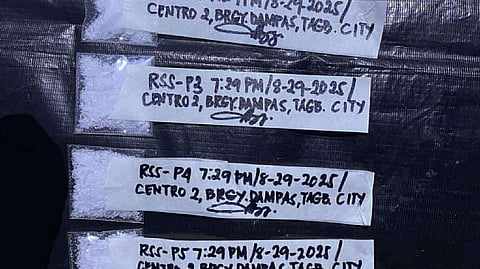 CENTRO 2, BRGY. DAMPAS, TAGB. CITY
RSS-P3 7:29 PM/8-29-2025/
CENTRO 2, BRGY. DAMPAS, TAGB. CITY
RSS-P4 7:29 PM/8-29-2025/
CENTRO 2, BRGY. DAMPAS, TAGB. CITY
RSS-P5 7:29 PM/8-29-2025/
CENTRO 2, BRGY. DAMPAS, TAGB. CITY